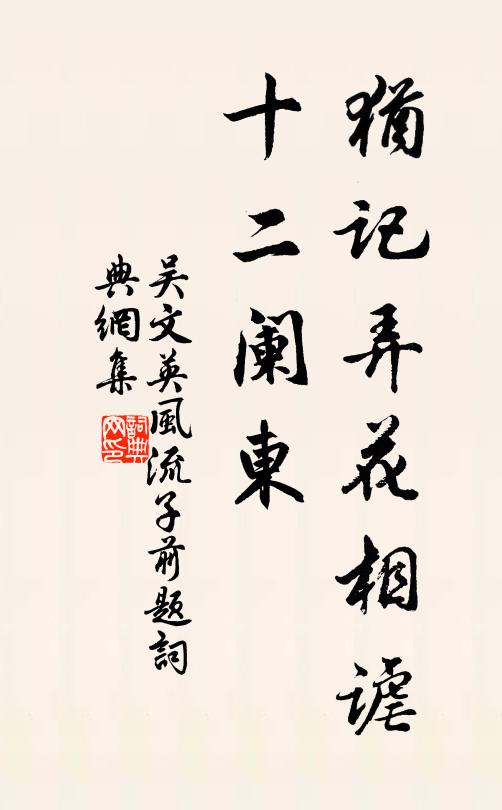 猶记弄花相謔
十二阑東
吴文英風流子前题詞
典網集
詞典网印